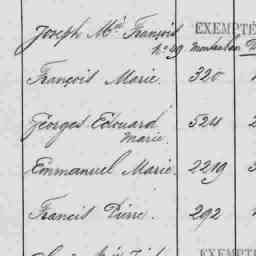 EXEMPTÉ
Joseph Mie François
n° 49 Montauban
François Marie. 320
Georges Edouard 524
Marie.
Emmanuel Marie. 2219
Francis Pierre. 292
EXEMPTÉ